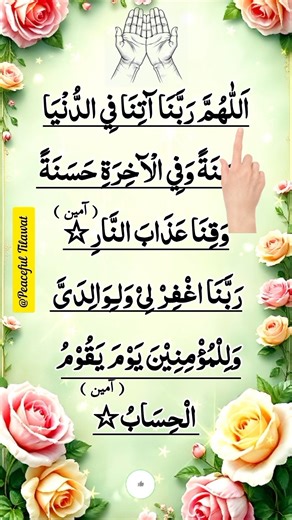 اَللّٰهُمَّ رَبَّنَا آتِنَا فِي الدُّنْيَا
وَفِي الْآخِرَةِ حَسَنَةً
(آمين)
وَقِنَا عَذَابَ النَّارِ ☆
رَبَّنَا اغْفِرْ لِيْ وَلِوَالِدَيَّ
وَلِلْمُؤْمِنِيْنَ يَوْمَ يَقُوْمُ
(آمين)
الْحِسَابُ ☆
@Peaceful Tilawat